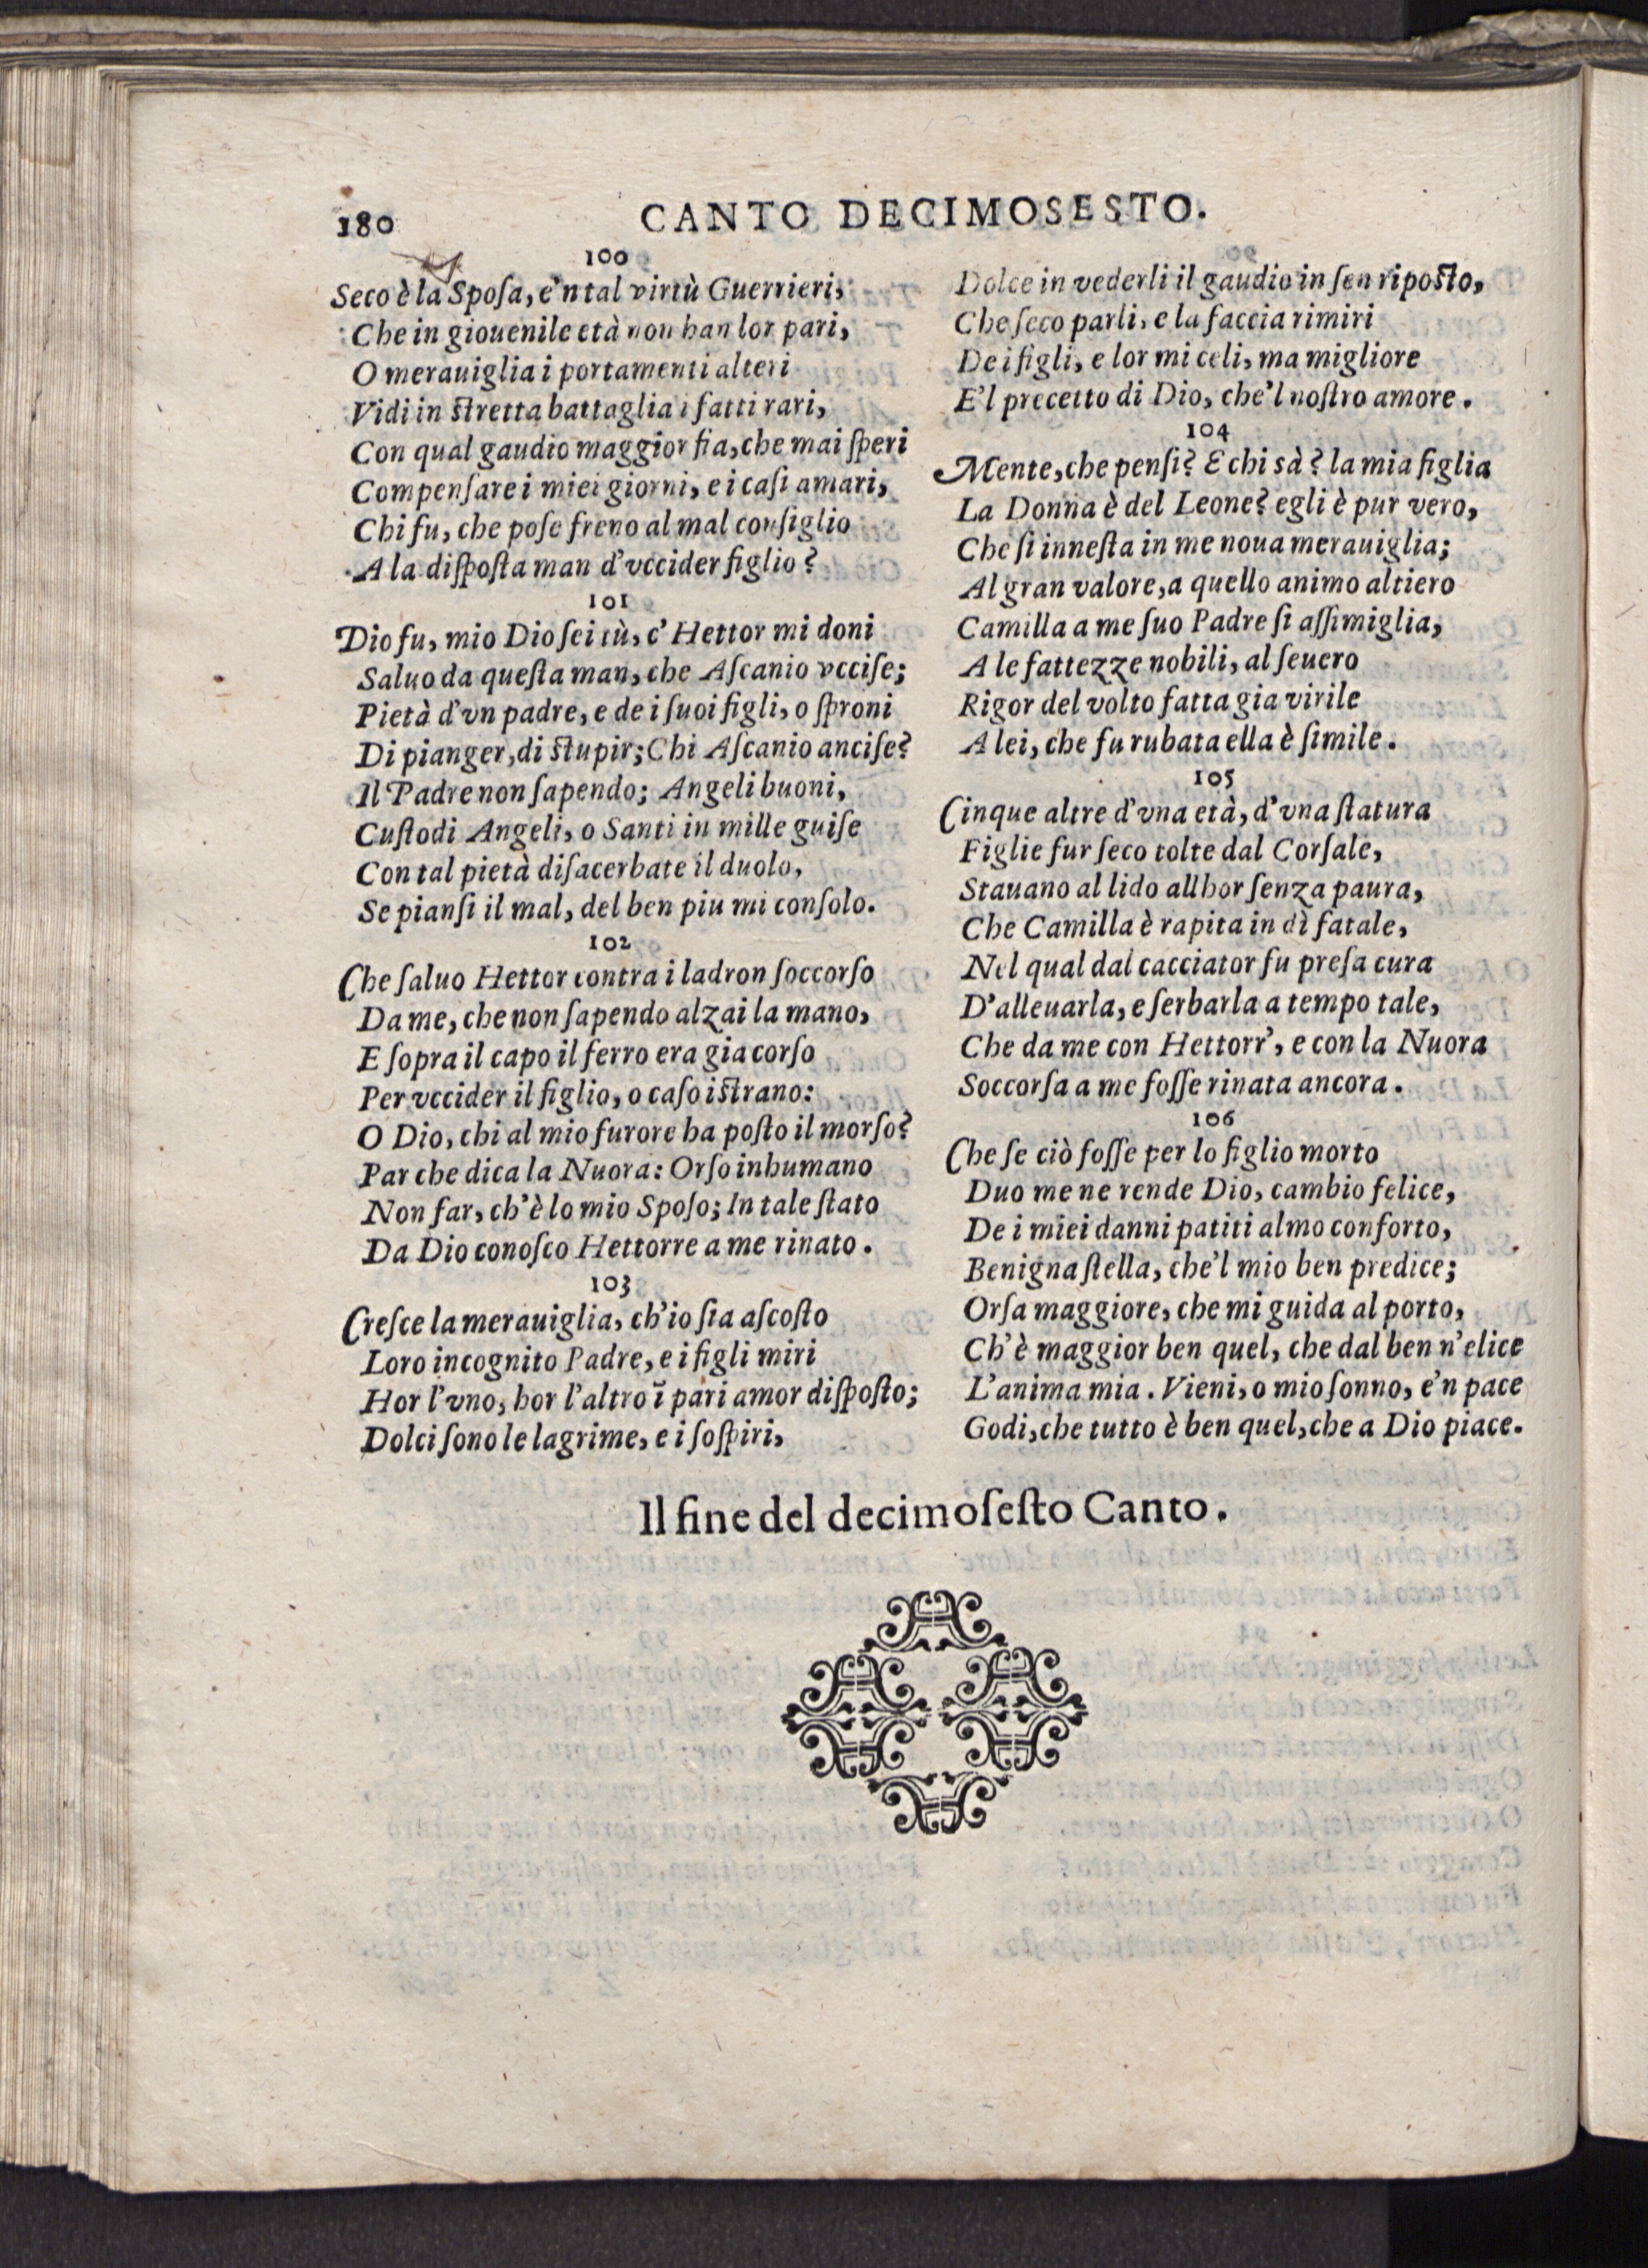 180
CANTO DECIMOSESTO.
100
Seco è la Spoſa, e'n tal virtù Guerrieri,
Che in giouenile età non han lor pari,
O merauiglia i portamenti alteri
Vidi in ſtretta battaglia i fatti rari,
Con qual gaudio maggior fia, che mai ſperi
Compenſare i miei giorni, e i caſi amari,
Chi fu, che poſe freno al mal conſiglio
A la diſpoſta man d'vccider figlio?
101
Dio fu, mio Dio ſei tù, c'Hettor mi doni
Saluo da queſta man, che Aſcanio vcciſe;
Pietà d'vn padre, e de i ſuoi figli, o ſproni
Di pianger, di ſtupir; Chi Aſcanio anciſe?
Il Padre non ſapendo; Angeli buoni,
Cuſtodi Angeli, o Santi in mille guiſe
Con tal pietà diſacerbate il duolo,
Se pianſi il mal, del ben piu mi conſolo.
102
Che ſaluo Hettor contra i ladron ſoccorſo
Da me, che non ſapendo alzai la mano,
E ſopra il capo il ferro era gia corſo
Per vccider il figlio, o caſo iſtrano:
O Dio, chi al mio furore ha poſto il morſo?
Par che dica la Nuora: Orſo inhumano
Non far, ch'è lo mio Spoſo; In tale ſtato
Da Dio conoſco Hettorre a me rinato.
103
Creſce la merauiglia, ch'io ſia aſcoſto
Loro incognito Padre, e i figli miri
Hor l'vno, hor l'altro ī pari amor diſpoſto;
Dolci ſono le lagrime, e i ſoſpiri,
Dolce in vederli il gaudio in ſen ripoſto,
Che ſeco parli, e la faccia rimiri
De i figli, e lor mi celi, ma migliore
E'l precetto di Dio, che'l noſtro amore.
104
Mente, che penſi? E chi sà? la mia figlia
La Donna è del Leone? egli è pur vero,
Che ſi inneſta in me noua merauiglia;
Al gran valore, a quello animo altiero
Camilla a me ſuo Padre ſi aſſimiglia,
A le fattezze nobili, al ſeuero
Rigor del volto fatta gia virile
A lei, che fu rubata ella è ſimile.
105
Cinque altre d'vna età, d'vna ſtatura
Figlie fur ſeco tolte dal Corſale,
Stauano al lido allhor ſenza paura,
Che Camilla è rapita in dì fatale,
Nel qual dal cacciator fu preſa cura
D'alleuarla, e ſerbarla a tempo tale,
Che da me con Hettorr', e con la Nuora
Soccorſa a me foſſe rinata ancora.
106
Che ſe ciò foſſe per lo figlio morto
Duo me ne rende Dio, cambio felice,
De i miei danni patiti almo conforto,
Benigna ſtella, che'l mio ben predice;
Orſa maggiore, che mi guida al porto,
Ch'è maggior ben quel, che dal ben n'elice
L'anima mia. Vieni, o mio ſonno, e'n pace
Godi, che tutto è ben quel, che a Dio piace.
Il fine del decimoſeſto Canto.